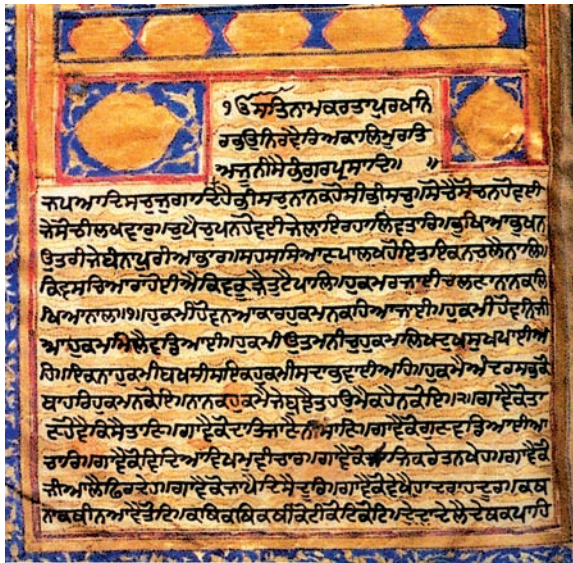 ੴਸਤਿਨਾਮਕਰਤਾਪੁਰਖਨਿ
ਰਭਉਨਿਰਵੈਰਿਅਕਾਲਿਮੂਰਤਿ
ਅਜੂਨੀਸੈਭੰਗੁਰਪ੍ਰਸਾਦਿ॥ ॥
ਜਪਆਦਿਸਚੁਜੁਗਾਦਿਹੈਭੀਸਚੁਨਾਨਕਹੋਸੀਭੀਸਚੁ॥ਸੋਚੈਸੋਚਨਹੋਵਈ
ਜੇਸੋਚੀਲਖਵਾਰ॥ਚੁਪੈਚੁਪਨਹੋਵਈਜੇਲਾਇਰਹਾਲਿਵਤਾਰਿ॥ਭੁਖਿਆਭੁਖਨ
ਉਤਰੀਜੇਬੰਨਪੁਰੀਆਭਾਰ॥ਸਹਸਸਿਆਣਪਾਲਖਹੋਇਤਇਕਨਚਲੈਨਾਲਿ॥
ਕਿਵਸਚਿਆਰਾਹੋਈਐਕਿਵਕੂੜੈਤੁਟੈਪਾਲਿ॥ਹੁਕਮਰਜਾਈਚਲਣਾਨਾਨਕਲਿ
ਖਿਆਨਾਲ॥੧॥ਹੁਕਮੀਹੋਵਨਆਕਾਰਹੁਕਮਨਕਹਿਆਜਾਈ॥ਹੁਕਮੀਹੋਵਨਿਜੀ
ਆਹੁਕਮਮਿਲੈਵਡਿਆਈ॥ਹੁਕਮੀਉਤਮਨੀਚੁਹੁਕਮਲਿਖਦੁਖਸੁਖਪਾਈਅ
ਹਿ॥ਇਕਨਾਹੁਕਮੀਬਖਸੀਸਇਕਹੁਕਮੀਸਦਾਭਵਾਈਅਹਿ॥ਹੁਕਮੈਅੰਦਰਸਭਕੋ
ਬਾਹਰਿਹੁਕਮਨਕੋਇ॥ਨਾਨਕਹੁਕਮੈਜੇਬੁਝੈਤਹਉਮੈਕਹੈਨਕੋਇ॥੨॥ਗਾਵੈਕੋਤਾ
ਣਹੋਵੈਕਿਸੈਤਾਣਿ॥ਗਾਵੈਕੋਦਾਤਿਜਾਣੈਨੀਸਾਣਿ॥ਗਾਵੈਕੋਗੁਣਵਡਿਆਈਆ
ਚਾਰਿ॥ਗਾਵੈਕੋਵਿਦਿਆਵਿਖਮੁਵੀਚਾਰ॥ਗਾਵੈਕੋਸਾਜਿਕਰੇਤਨਖੇਹ॥ਗਾਵੈਕੋ
ਜੀਆਲੈਫਿਰਦੇਹ॥ਗਾਵੈਕੋਜਾਪੈਦਿਸੈਦੂਰਿ॥ਗਾਵੈਕੋਵੇਖੈਹਾਦਰਾਹਦੂਰ॥ਕਥ
ਨਾਕਥੀਨਆਵੈਤੋਟਿ॥ਕਥਿਕਥਿਕਥੀਕੋਟੀਕੋਟਿਕੋਟਿ॥ਦੇਦਾਦੇਲੈਥਕਪਾਹਿ